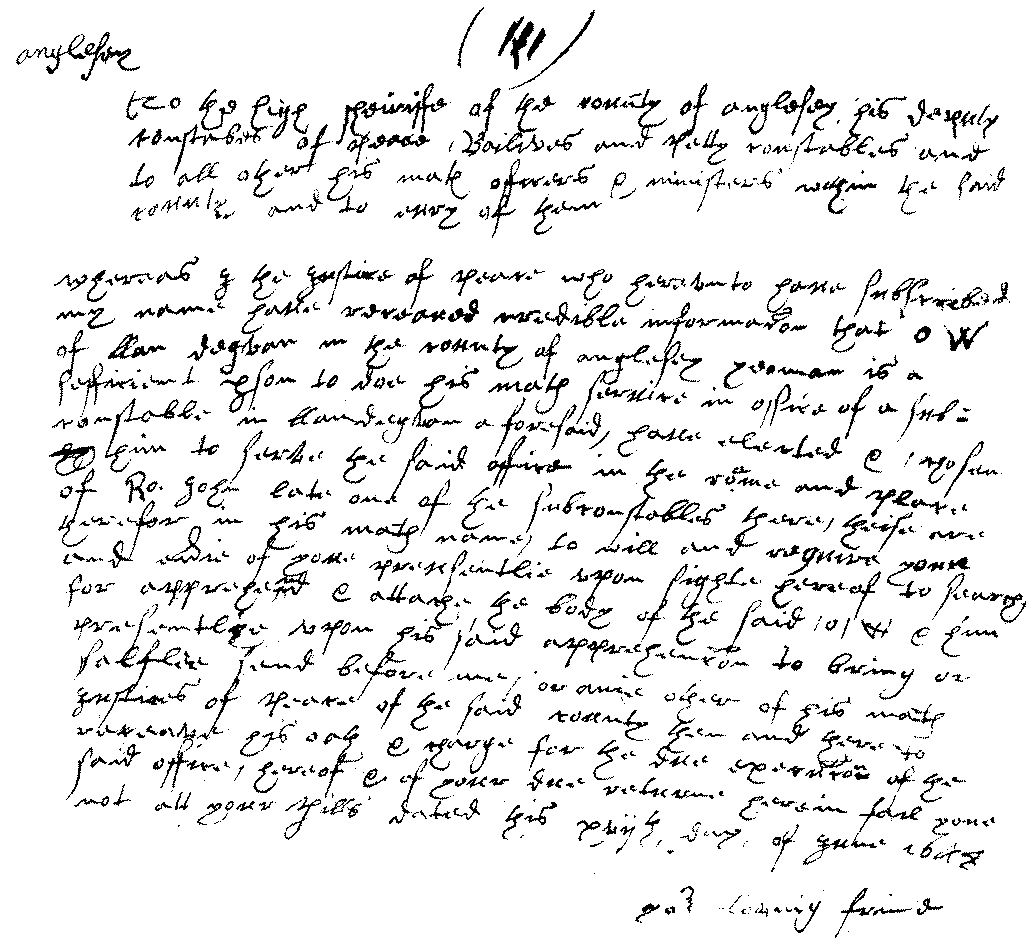 anglesey
To the high sheriffe of the county of anglesey his deputy
constables of peace Bailives and petty constables and
to all other his maties officers & ministers within the said
county and to every of them
whereas I the justice of peace who hereunto have subscribed
my name have receaved credible information that O W
of llan degvan in the county of anglesey yeoman is a
sefficient pson to doe his maties service in office of a sub=
constable in llandegvan aforesaid, have elected & chosen
him to serve the said office in the rome and place
of Ro. John late one of the subconstables there, theise are
therefor in his maties name, to will and require youe
and everie of youe presentlie upon sighte hereof to search
for apprehend & attache the body of the said O W & him
presentlye upon his said apprehencon to bring or
salflie send before me, or anie other of his maties
justices of peace of the said county then and there to
receave his oath & charge for the due execution of the
said office, hereof & of your due returne herein fail youe
not att your pills dated this xviijth day of June
yor loving friend